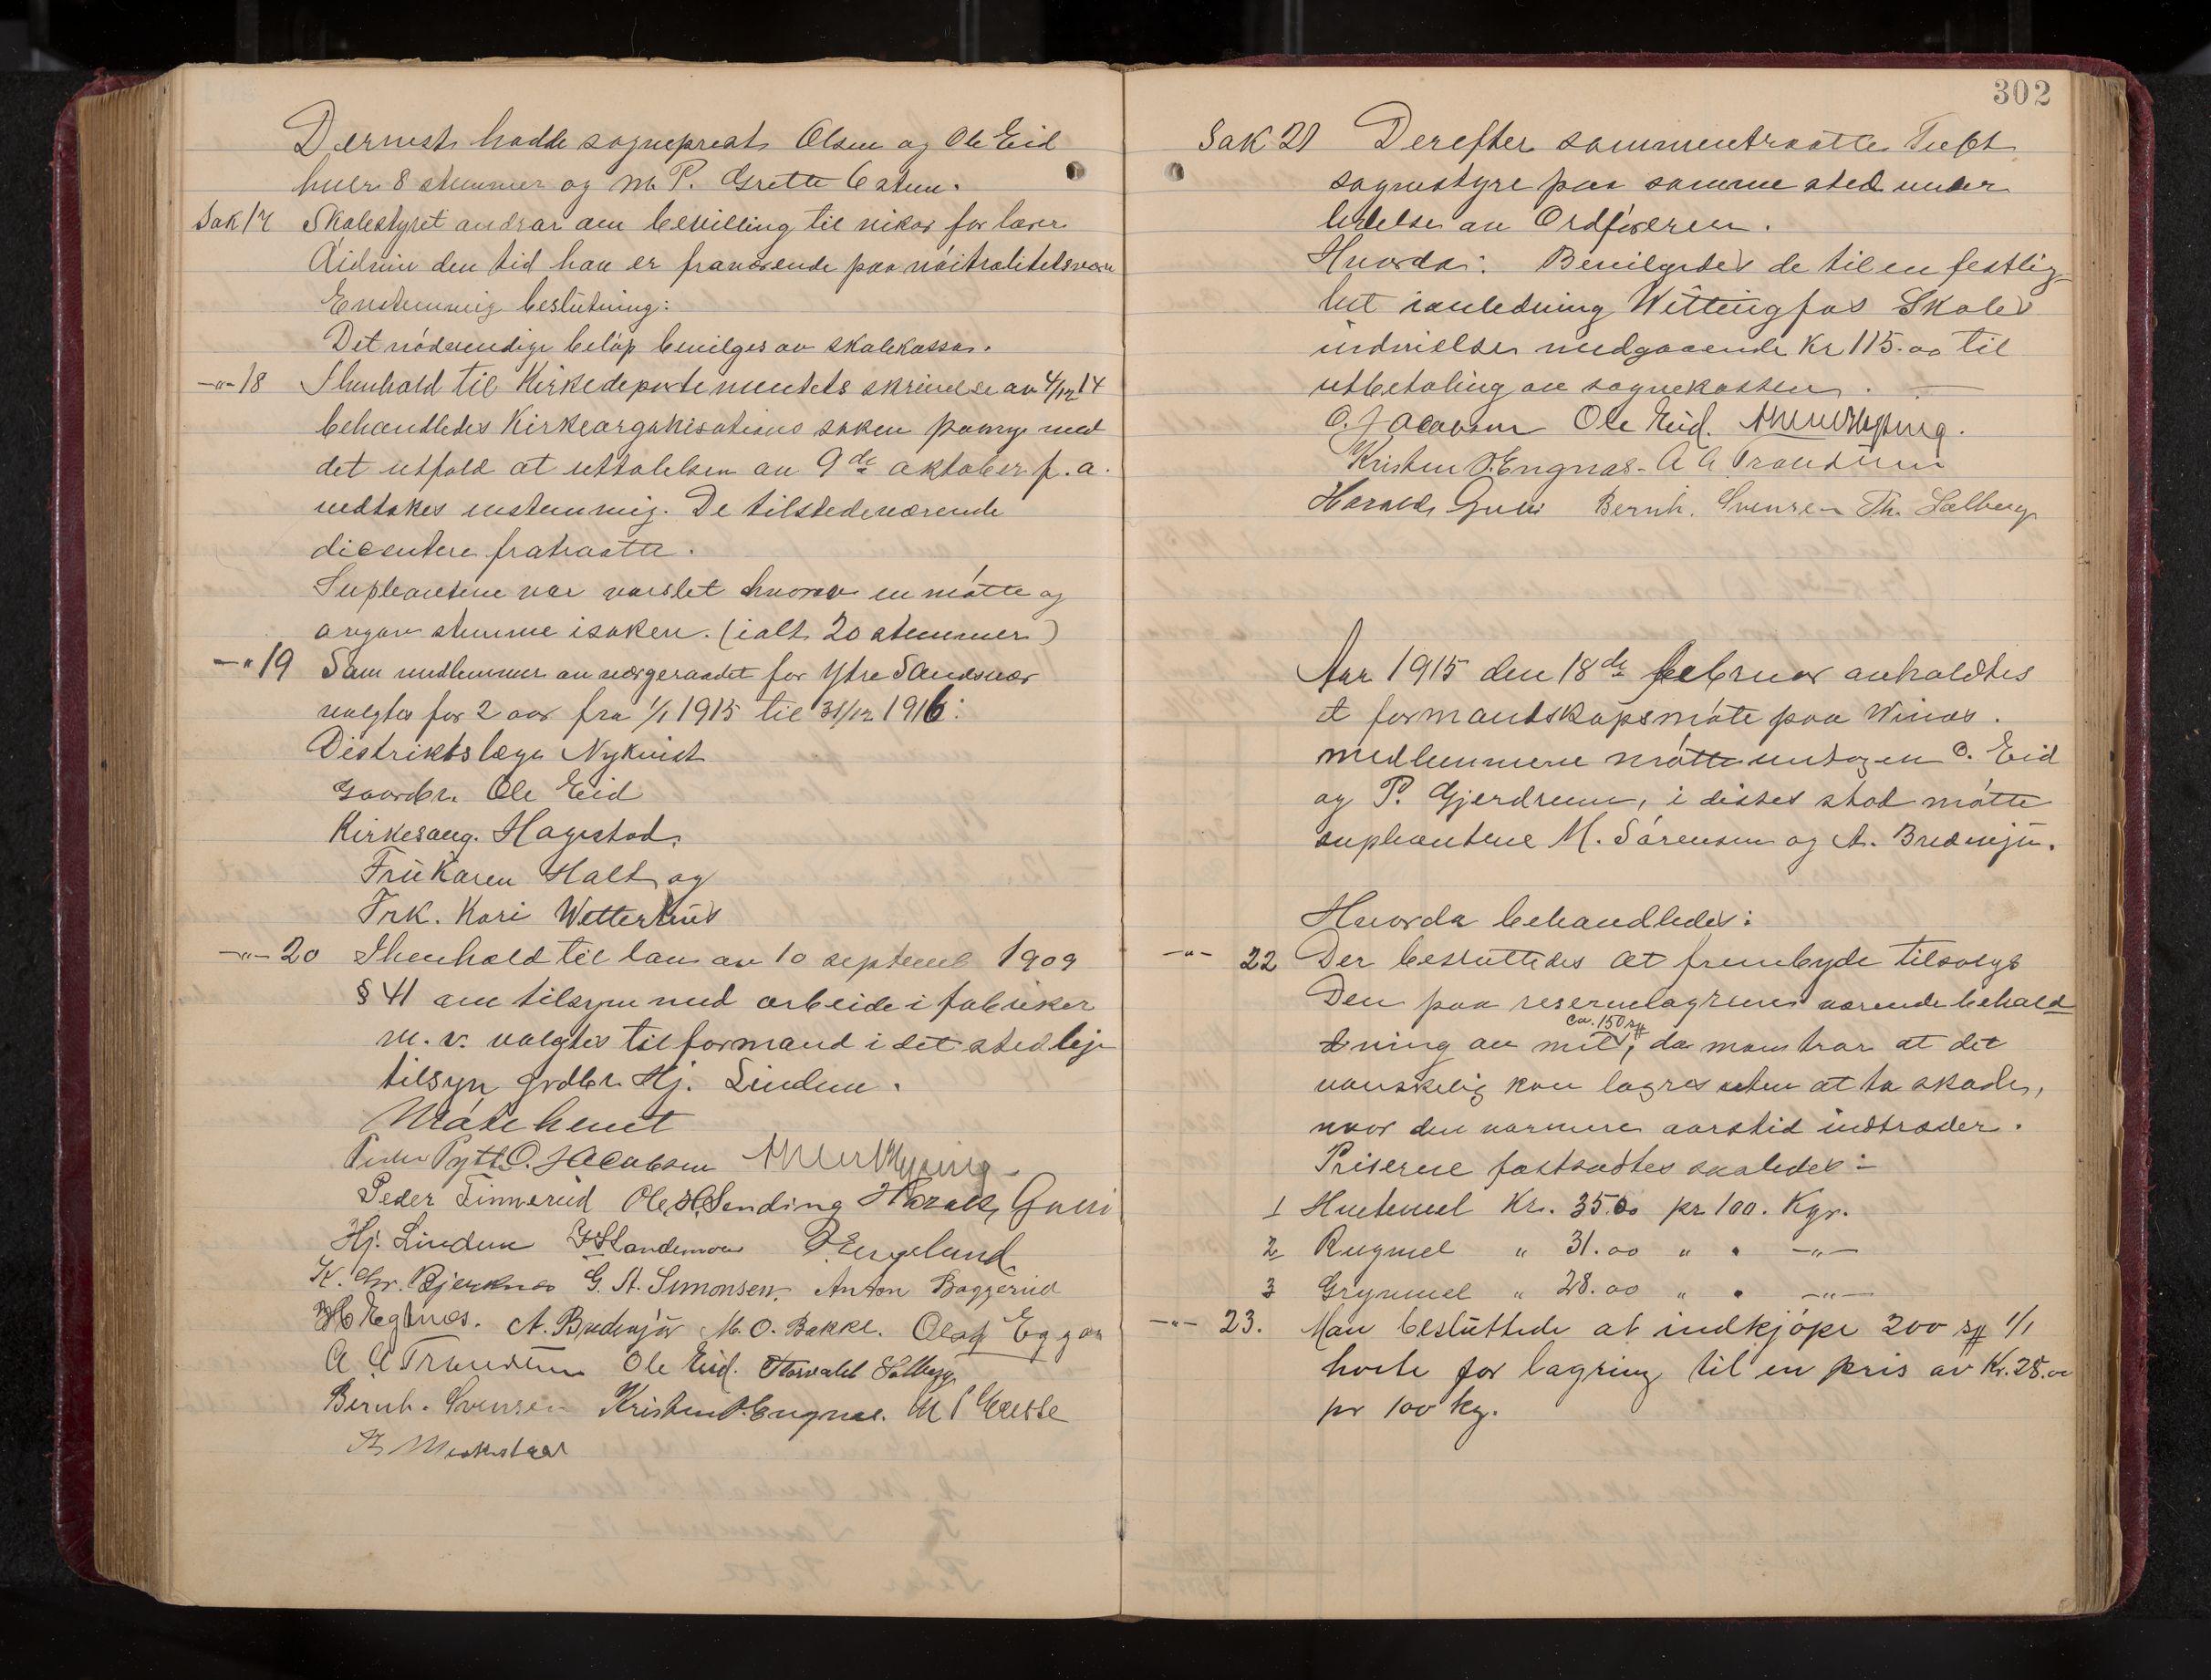 Dernest hadde sogneprest Olsen og Ole Eid
hver 8 stemmer og M. P. Grette 6 stem.
Sak 17 Skolestyret andrar om bevilling til vikar for lærer
den tid han er fraværende paa nöitralitetsvern
Enstemmig beslutning:
Det nödvendige belöp bevilges av skolekassen.
-"- 18 I henhold til Kirkedepartementets skrivelse av 4/12 14
behandledes Kirkeorganisations saken paany med
det utfald at uttalelsen av 9de oktober f. a.
vedtokes enstemmig. De tilstedeværende
dicentere fratraatte.
Supleantene var varslet hvorav en mötte og
avgav stemme i saken. (ialt 20 stemmer)
-"- 19 Som medlemmer av vergeraadet for Ytre Sandsvær
valgtes for 2 aar fra 1/1 1915 til 31/12 1916:
Distriktslæge Nykvist
Gaardbr. Ole Eid
Kirkesang. Hagestad.
Fru Karen Holt og
Frk. Kari Wetterhus
-"- 20 I henhold til lov av 10 septemb 1909
§ 41 om tilsyn med arbeide i fabriker
m. v. valgtes til formand i det stedlige
tilsyn grdbr. Hj. Lindem.
Möte hevet
O. Jacobsen
Peder Finnerud Ole H. Sending Harald Gulli
Hj. Lindem P. Engelund
K. Chr. Bjerknes G. A. Simonsen. Anton Baggerud
A. Bredesjör M. O. Bakke. Olaf Eggar
A A Trondsen Ole Eid. Thorvald Solberg
Bernh. Svensen Kristen P. Engnæs. M P Grette
302
Sak 21 Derefter sammentraatte Tuft
sognestyre paa samme sted under
ledelse av Ordföreren.
Hvorda: Bevilgedes de til en festlig
het i anledning Wittingfos Skoles
indvielse medgaaende Kr 115.00 til
utbetaling av sognekassen.
O. Jacobsen Ole Eid.
Kristen P. Engnæs. A A Trondsen
Harald Gulli Bernh. Svensen Th. Solberg
Aar 1915 den 18de februar avholdtes
et formandskapsmöte paa Winæs.
medlemmerne mötte undtagen O. Eid
og P. Gjerdrum, i disses sted mötte
supleantene M. Sörensen og A. Bredesjör.
Hvorda behandledes:
-"- 22 Der besluttedes at frembyde tilsalgs
Den paa reservelagrene værende behold
dning av mel, ca. 150 sk da man tror at det
vanskelig kan lagres uten at ta skade,
naar den varmere aarstid indtræder.
Priserne fastsattes saaledes:
1 Hvetemel Kr. 35.00 pr 100. Kgr.
2 Rugmel " 31.00 " " -"-
3 Grynmel " 28.00 " " -"-
-"- 23. Man besluttede at indkjöpe 200 sk 1/1
hvete for lagring til en pris av Kr. 28.00
pr 100 kg.